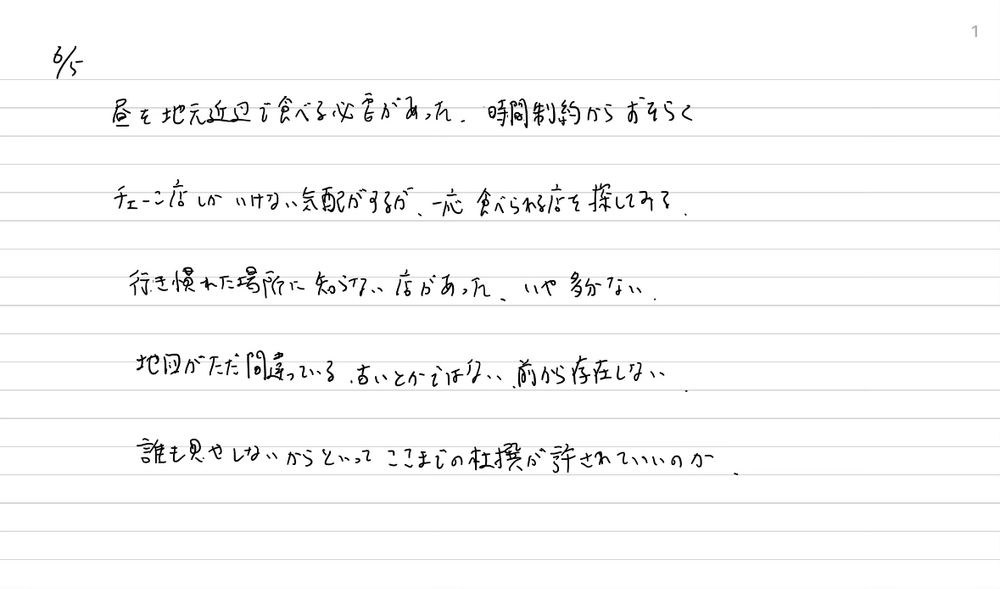 1
6/5
昼を地元近辺で食べる必要があった. 時間制約からおそらく
チェーン店しかいけない気配がするが、一応食べられる店を探してみる.
行き慣れた場所に知らない店があった、いや多分ない.
地図がただ間違っている.古いとかではない.前から存在しない.
誰も見やしないからといってここまでの杜撰が許されていいのか.